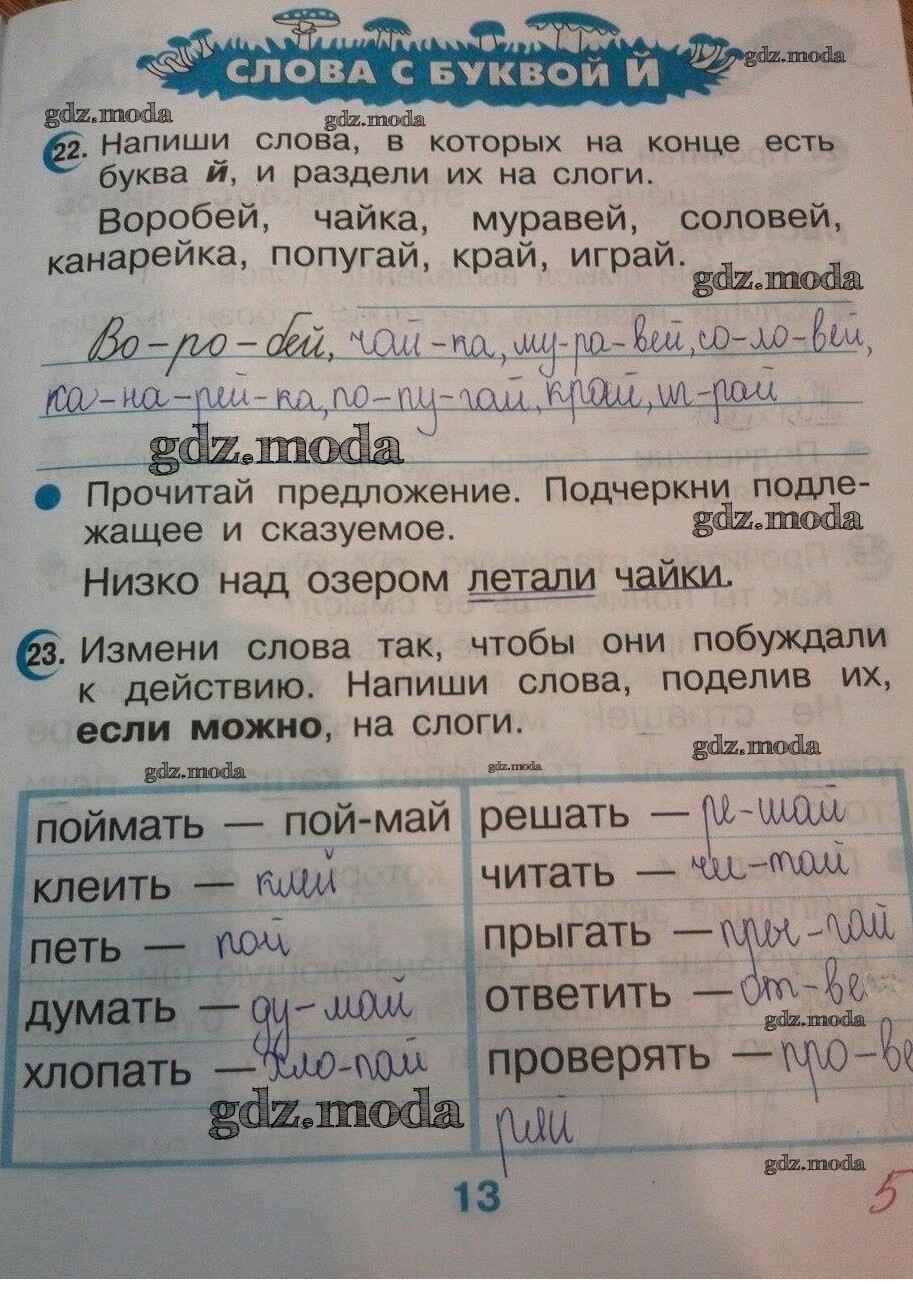 СЛОВА С БУКВОЙ Й
gdz.moda
gdz.moda
gdz.moda
22. Напиши слова, в которых на конце есть
буква й, и раздели их на слоги.
Воробей, чайка, муравей, соловей,
канарейка, попугай, край, играй.
gdz.moda
Во-ро-бей, чай-ка, му-ра-вей, со-ло-вей,
ка-на-рей-ка, по-пу-гай, край, иг-рай
gdz.moda
Прочитай предложение. Подчеркни подле-
жащее и сказуемое.
gdz.moda
Низко над озером летали чайки.
23. Измени слова так, чтобы они побуждали
к действию. Напиши слова, поделив их,
если можно, на слоги.
gdz.moda
gdz.moda
gdz.moda
поймать — пой-май
клеить — клей
петь — пой
думать — ду-май
хлопать — хло-пай
gdz.moda
решать — ре-шай
читать — чи-тай
прыгать — пры-гай
ответить — от-ве
gdz.moda
проверять — про-ве
ряй
gdz.moda
13
5